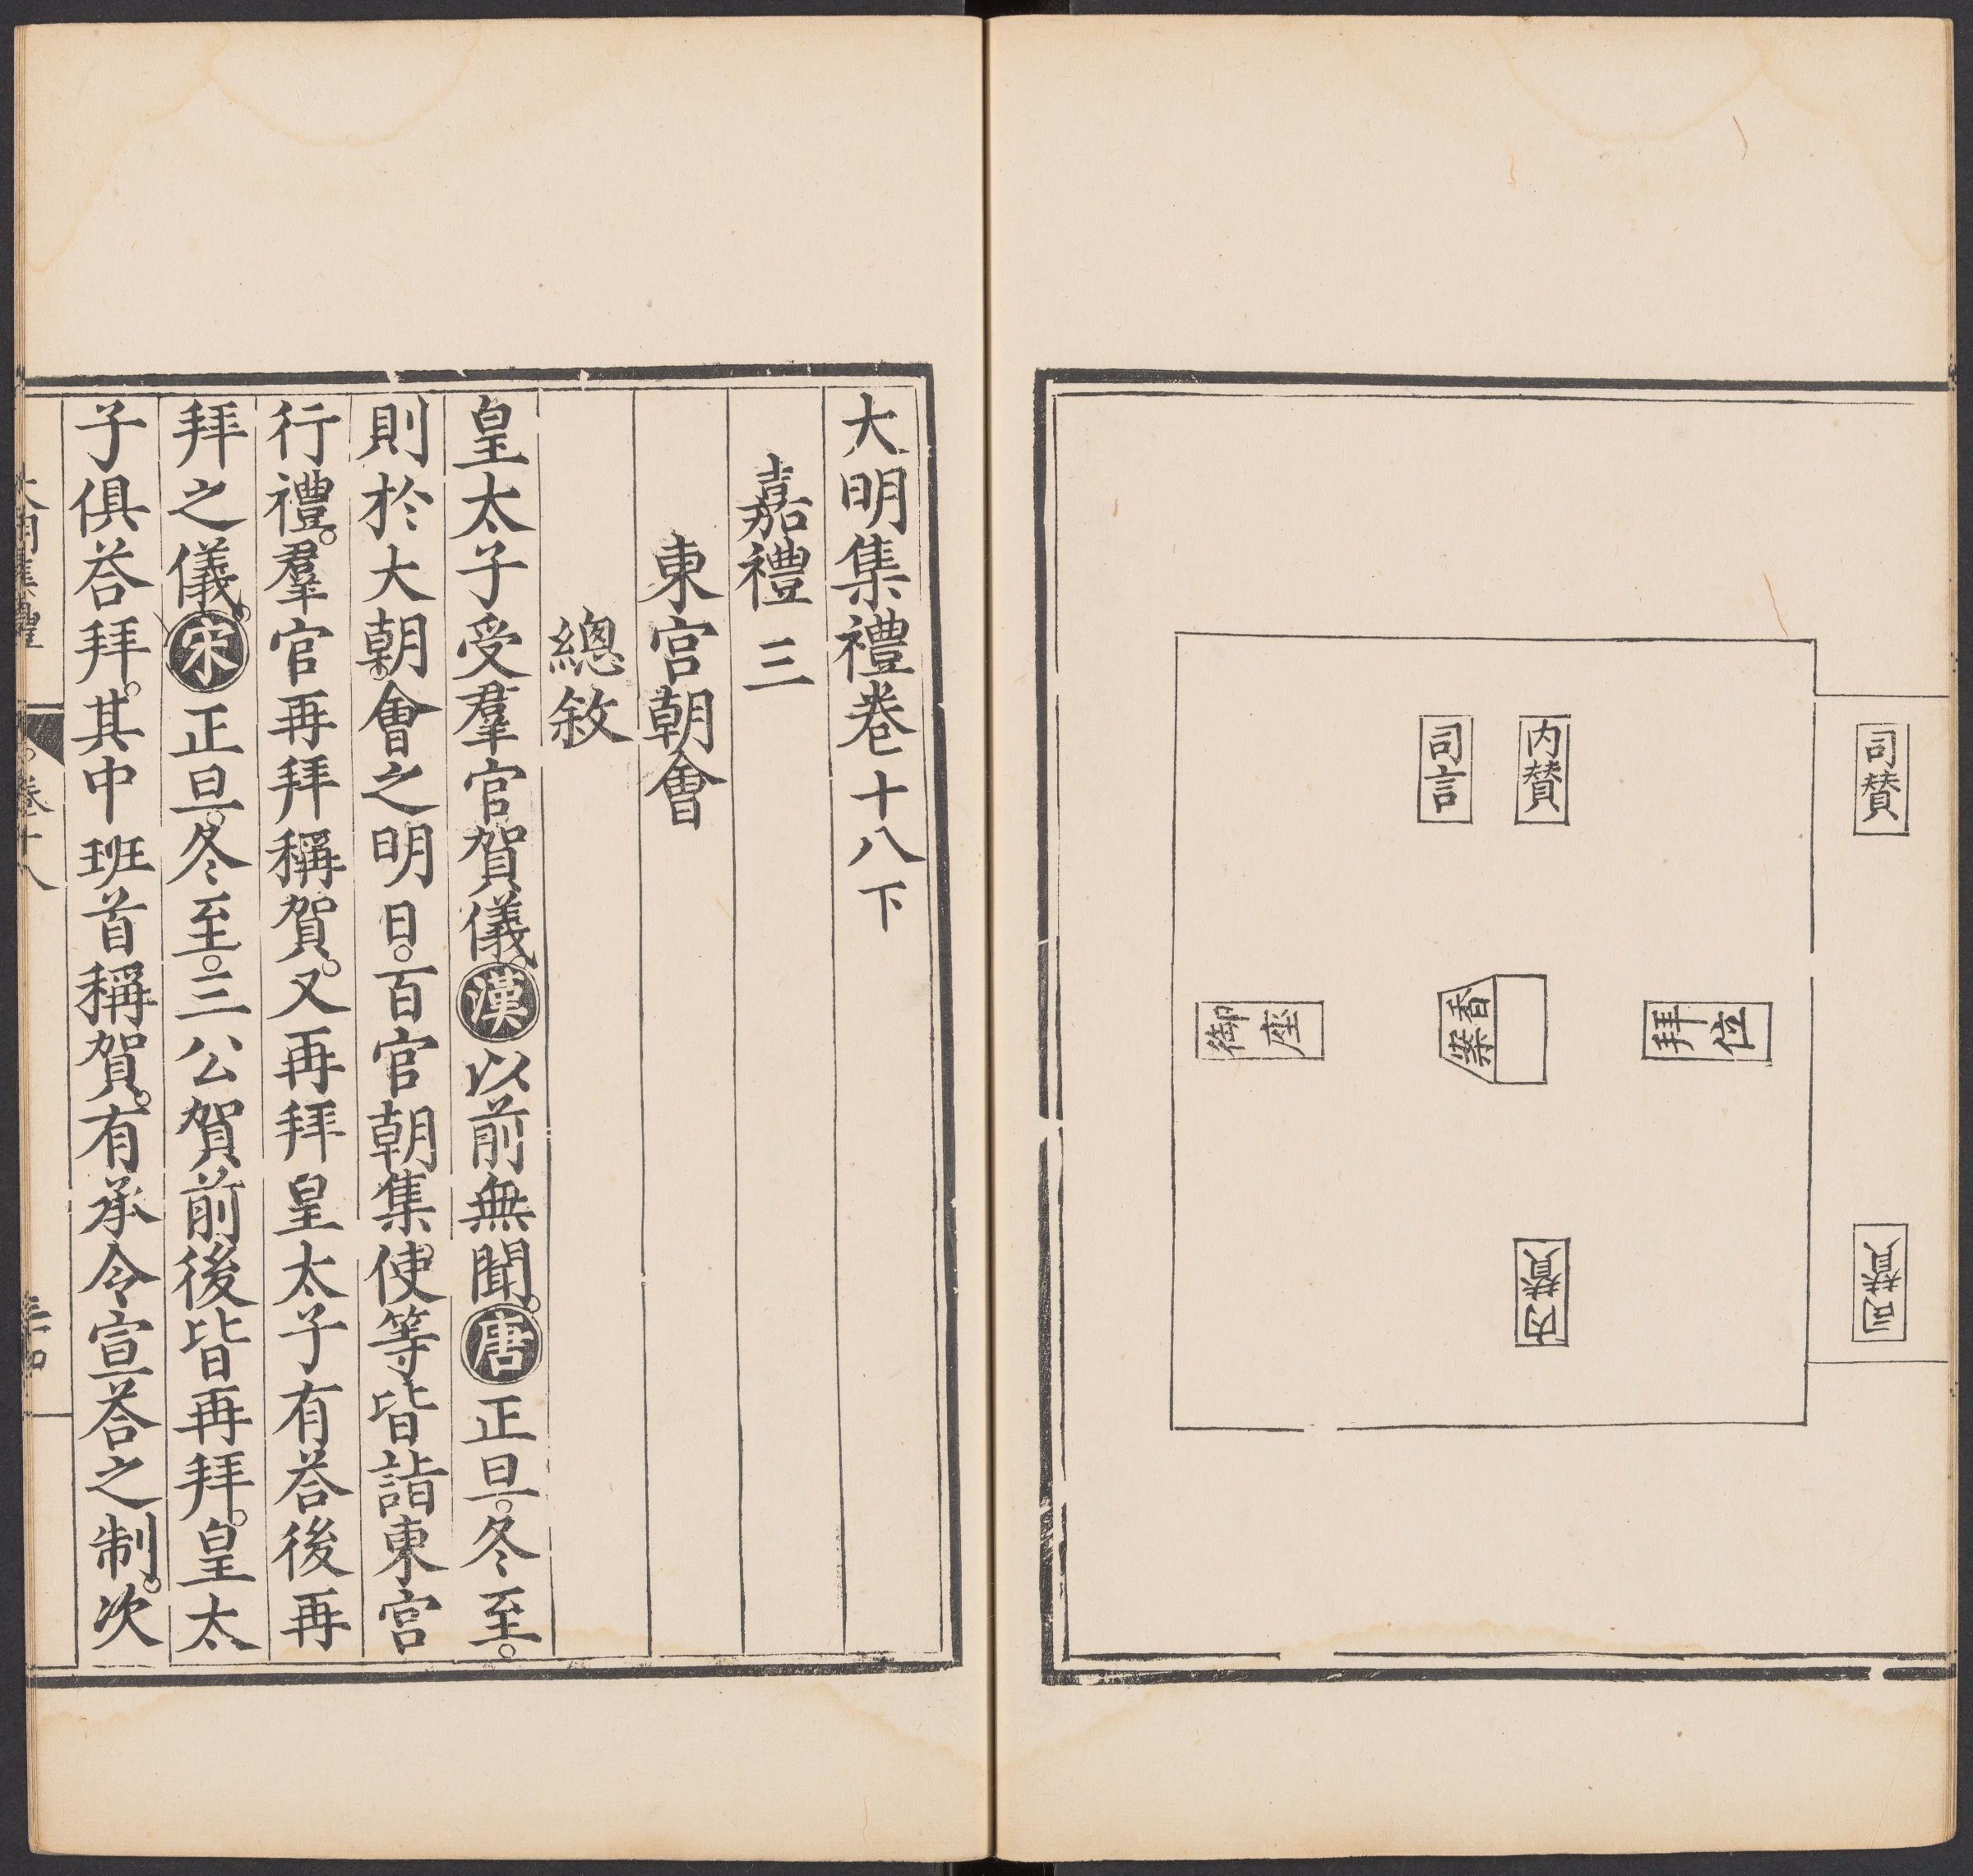 司贊
司贊
拜位
内贊
内贊
香案
司言
御座
大明集禮卷十八下
嘉禮三
東宮朝會
總敘
皇太子受羣官賀儀。漢以前無聞。唐正旦。冬至。
則於大朝。會之明日。百官朝集。使等皆詣東宮
行禮。羣官再拜稱賀。又再拜皇太子有荅後再
拜之儀。宋正旦。冬至。三公賀前後皆再拜。皇太
子俱荅拜。其中班首稱賀。有承令宣荅之制。次
大明集禮
卷十八